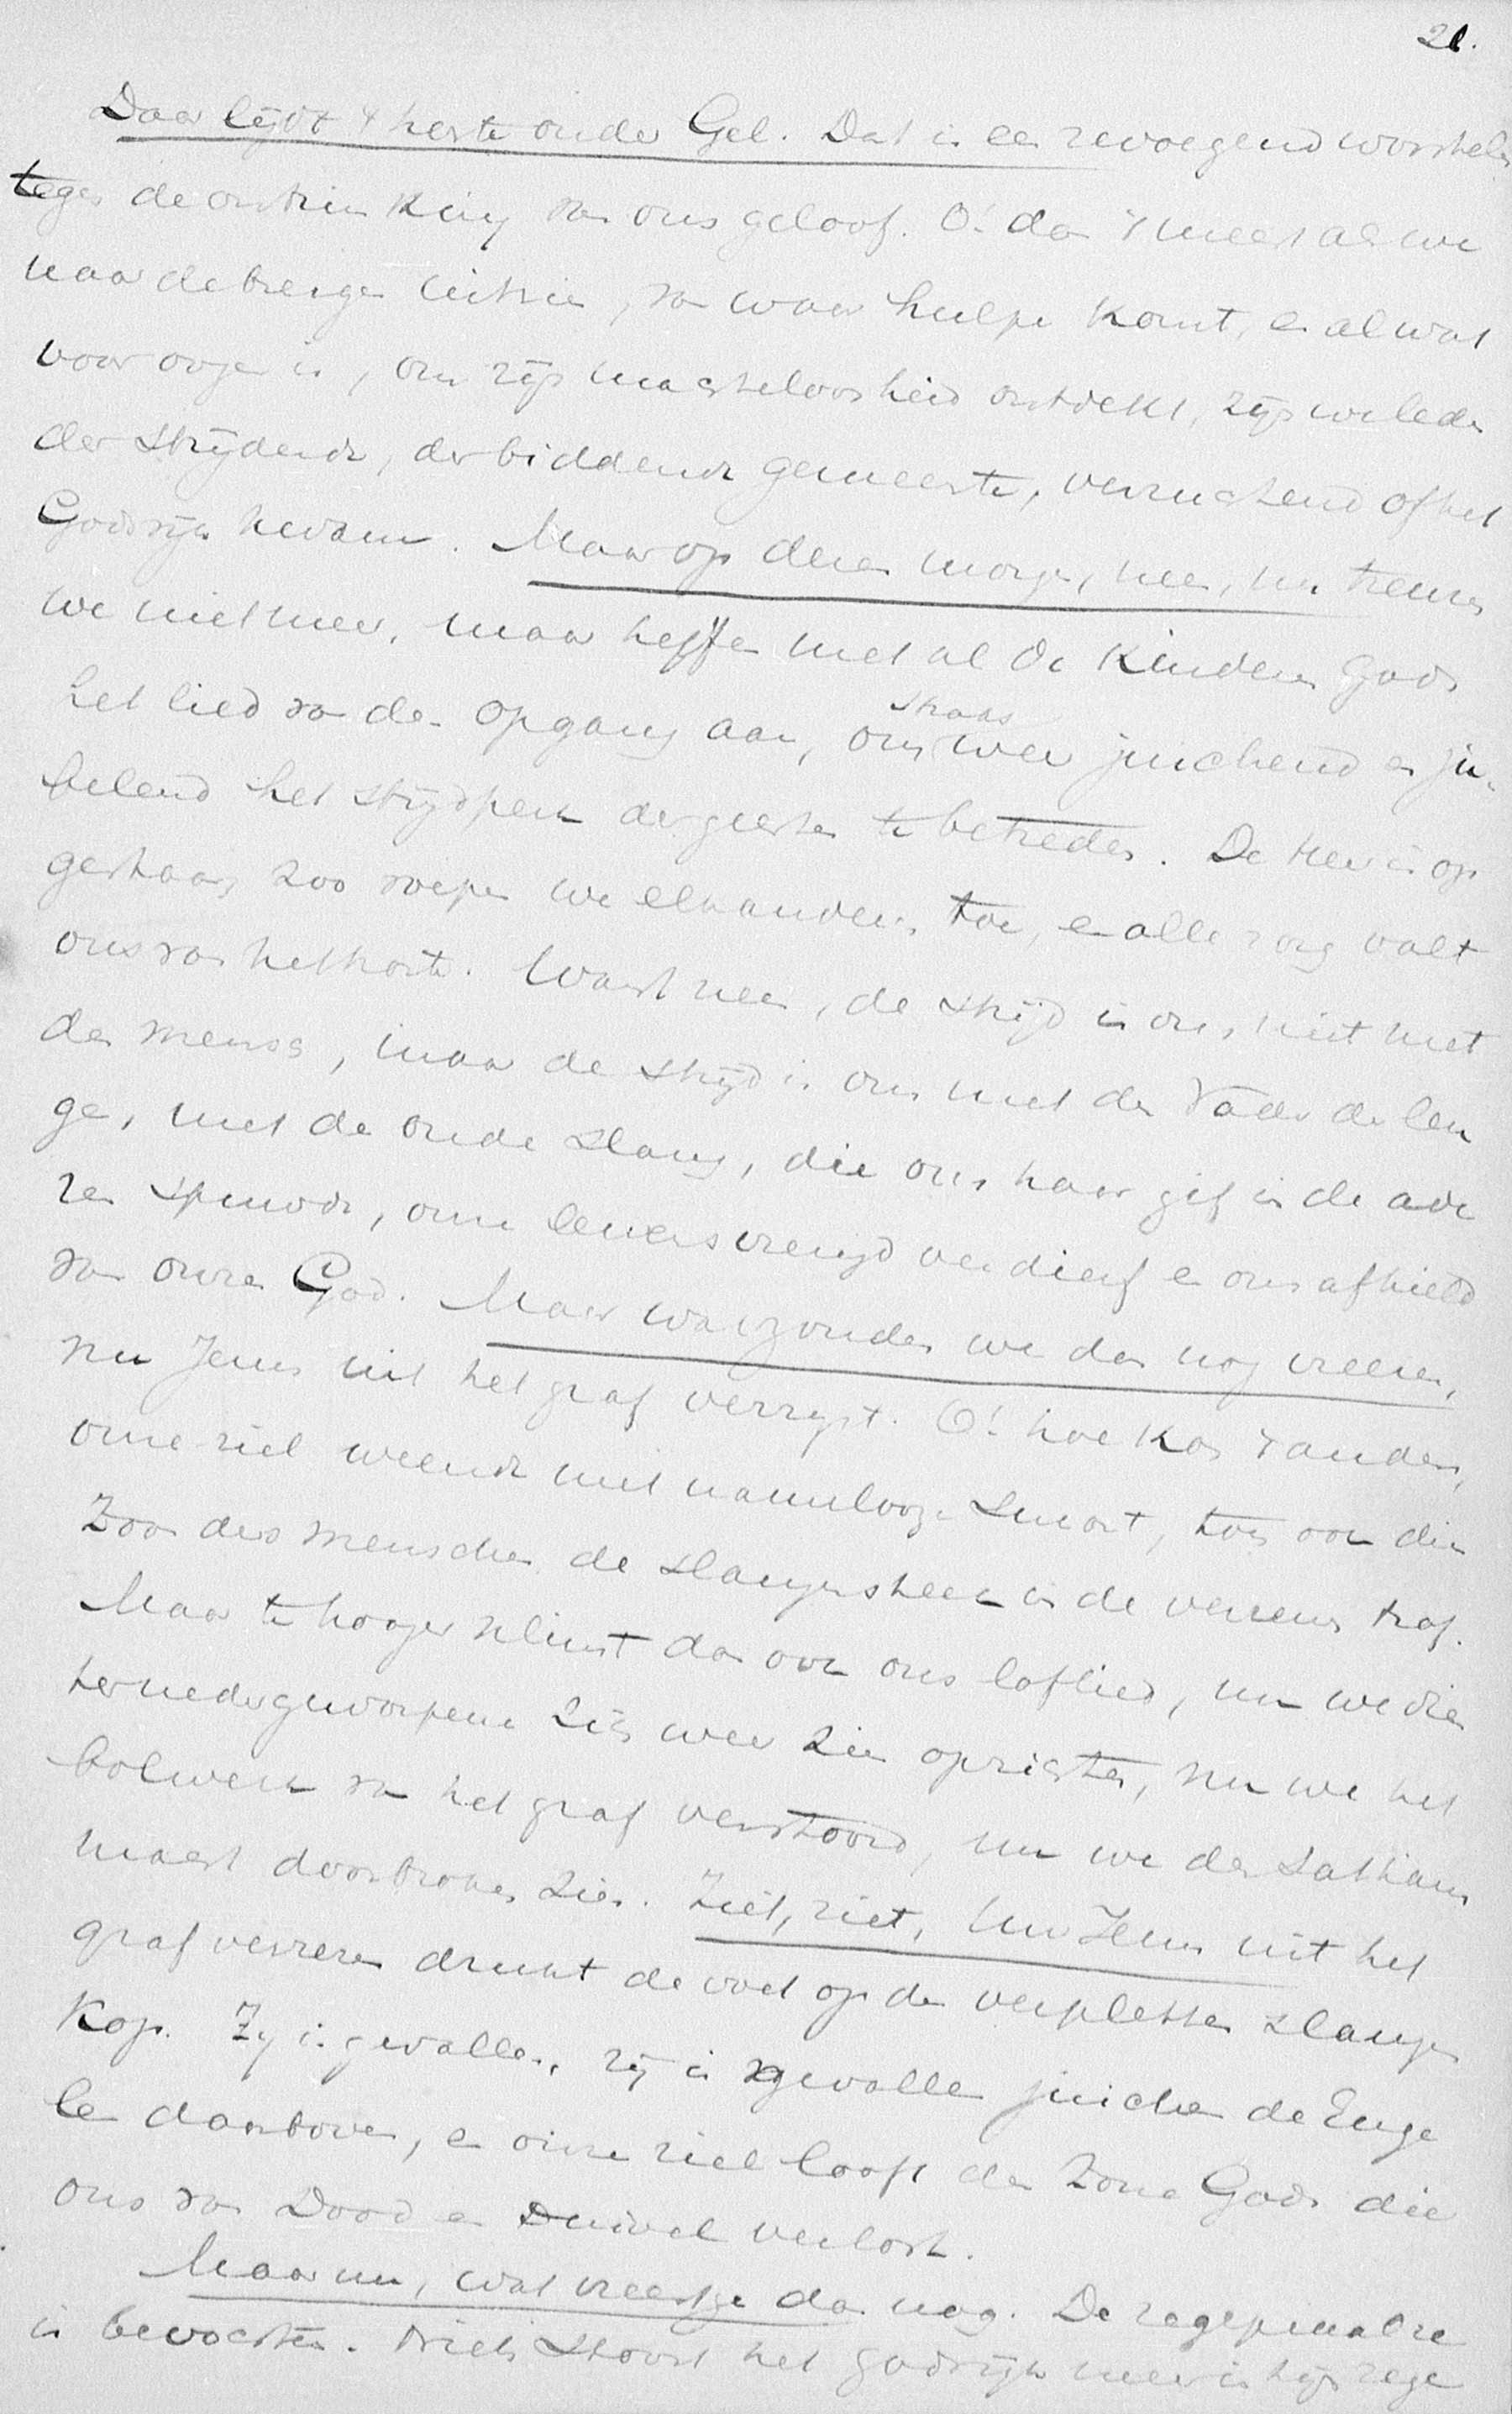 21.
Daar lijdt 't harte onder Gel. Dat is een zwoegend worstelen
tegen de ontzinking van ons geloof. O! dan 't meest als we
naar de bergen uitzien, van waar hulpe komt, en al wat
voor oogen is, ons zijn machteloosheid ontdekt, zijn we leden
der strijdende, der biddende gemeente, verzuchtend of het
Godsrijk kwam. Maar op dezen morgen, neen, nu treuren
we niet meer, maar heffen met al de kinderen Gods
het lied van den opgang aan, om straks weer juichend en ju-
belend het strijdperk der geesten te betreden. De Heer is op
gestaan zoo roepen we elkanderen toe, en alle zorg valt
ons van het harte. Want neen, de strijd is ons niet met
den mensch, maar de strijd is ons met den Vader der leu
gen, met de oude slang, die ons haar gif in de ade
ren spuwde, onze levensvreugd verdierf en ons afhield
van onzen God. Maar wat zouden we dan nog vreezen,
nu Jezus uit het graf verrijst. O! hoe kon 't anders,
onze ziel weende met naamlooze smart, toen ook dien
Zoon des menschen de slangensteek in de verzenen trof.
Maar te hooger klinkt dan ook ons loflied, nu we dien
ternedergeworpene zich weer zien oprichten, nu we het
bolwerk van het graf verstoord, nu we den Sathans
macht doorbroken zien. Ziet, ziet, Uw Jezus uit het
graf verrezen drukt de voet op den verpletten slangen
kop. Zij is gevallen, zij is gevallen juichen de Enge
len daarboven, en onze ziel looft den Zone Gods die
ons van Dood en Duivel verlost.
Maar nu, wat vreest ge dan nog. De zegepraal
is bevochten. Niets stoort het godsrijk meer in zijn zege